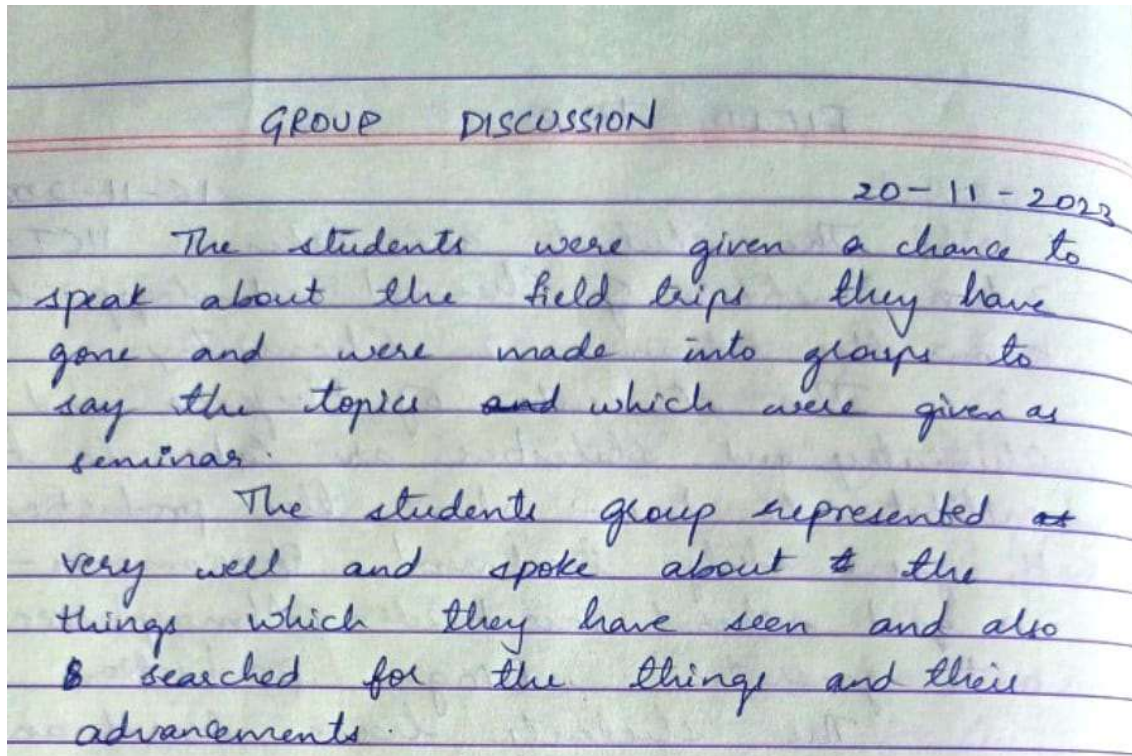 GROUP DISCUSSION
20-11-2023
The students were given a chance to
speak about the field trips they have
gone and were made into groups to
say the topics and which were given as
seminar.
The students group represented at
very well and spoke about t the
things which they have seen and also
s searched for the things and their
advancements.